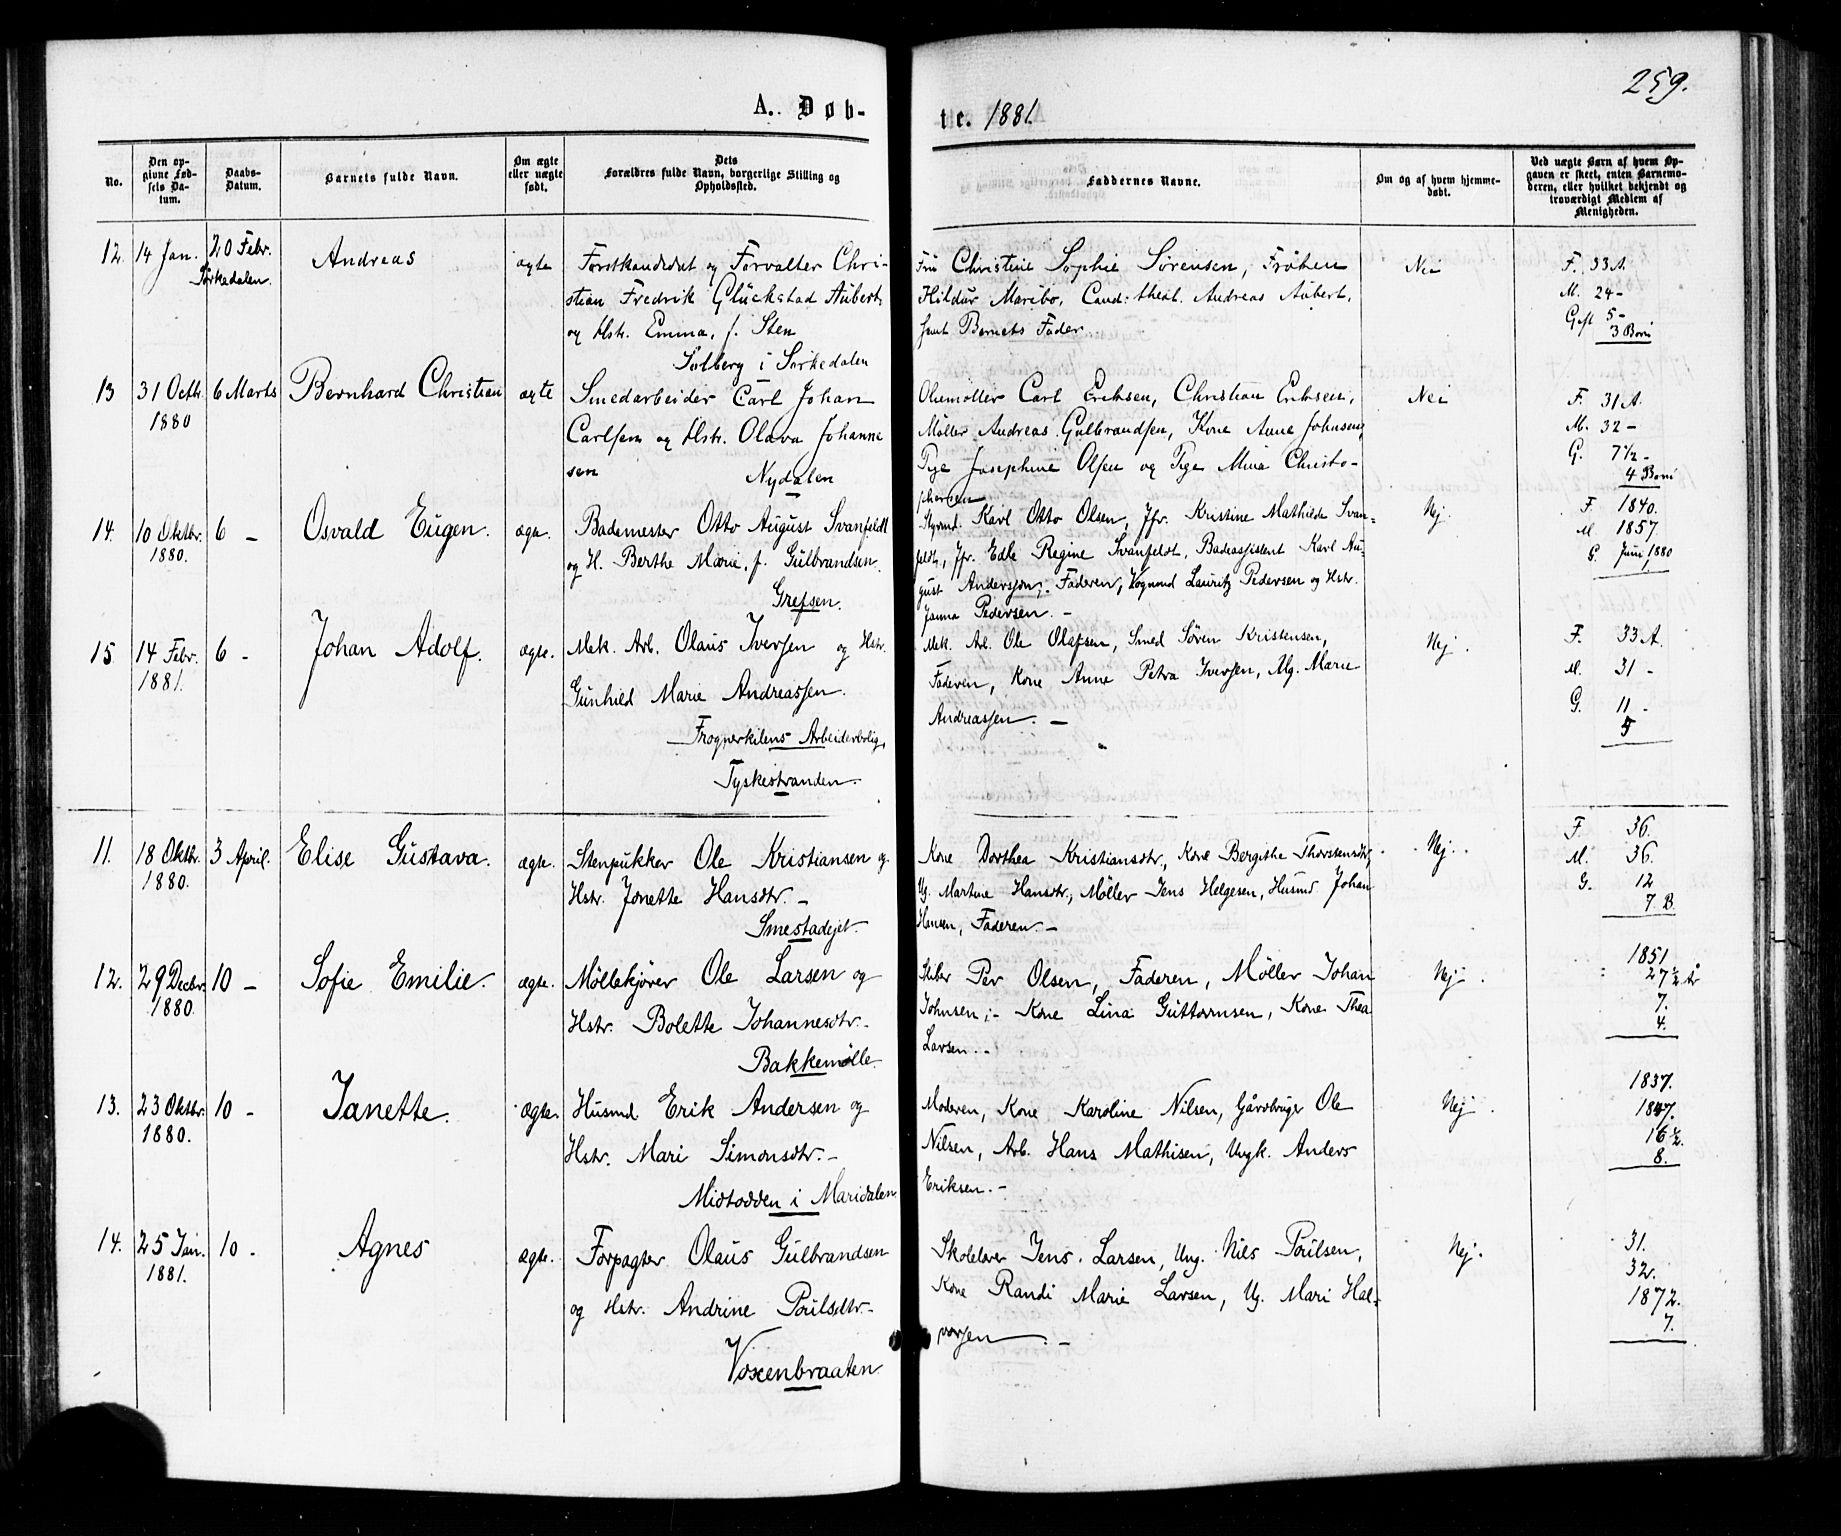 259.
A. Døb-
te. 1881.
No.
Den op-
givne Fød-
sels Da-
tum.
Daabs-
Datum.
Barnets fulde Navn.
Om ægte
eller uægte
født.
Dets
Forældres fulde Navn, borgerlige Stilling og
Opholdssted.
Faddernes Navne.
Om og af hvem hjemme-
døbt.
Ved uægte Børn af hvem Op-
gaven er skeet, enten Barnemo-
deren, eller hvilket bekjendt og
troværdigt Medlem af
Menigheden.
12. 14 Jan. 20 Febr.
Sørkedalen.
Andreas
ægte
Forstkandidat og Forvalter Chri-
stian Fredrik Glückstad Aubert
og Hstr. Emma, f. Sten
Solberg i Sørkedalen
Fru Christine Sophie Sørensen, Frøken
Hildur Maribo, Cand: theol. Andreas Aubert,
samt Barnets Fader.
Nei
F. 33 A.
M. 24 -
Gift 5 -
3 Børn
13 31 Octbr.
1880
6 Marts
Bernhard Christian
ægte
Smedarbeider Carl Johan
Carlsen og Hstr. Olava Johanne
sen
Nydalen
Oliemøller Carl Eriksen, Christian Eriksen,
Møller Andreas Gulbrandsen, Kone Anne Johnsen,
Pige Josephine Olsen og Pige Mina Christo-
phersen
Nei
F. 31 A.
M. 32 -
G. 7½ -
4 Børn
14. 10 Oktbr.
1880.
6 -
Osvald Eugen.
ægte.
Bademester Otto August Svanfeldt
og H. Berthe Marie, f. Gulbrandsen.
Grefsen.
Styrmd. Karl Otto Olsen, Jfr. Kristine Mathilde Svan-
feldt, Jfr. Edle Regine Svanfeldt, Badeassistent Karl Au-
gust Andersson, Faderen, Vognmd Lauritz Pedersen og Hstr.
Janna Pedersen. -
Nej.
F. 1840.
M. 1857
G. Juni 1880
15. 14 Febr.
1881.
6 -
Johan Adolf.
ægte.
Mek. Arb. Olaus Iversen og Hstr.
Gunhild Marie Andreassen.
Frognerkilens Arbeiderbolig,
Tyskestranden.
Mek. Arb. Ole Olafsen, Smed Søren Kristensen,
Faderen, Kone Anne Petra Iversen, Ug. Marie
Andreassen. -
Nej.
F. 33 A.
M. 31 -
G. 11 -
5
11. 18 Oktbr.
1880.
3 April.
Elise Gustava.
ægte.
Stenpukker Ole Kristiansen og
Hstr. Jonette Hansdtr. -
Smestadejet.
Kone Dorthea Kristiansdtr, Kone Bergithe Thorstensdtr,
Ug. Martine Hansdtr., Møller Jens Helgesen, Husmd. Johan
Hansen, Faderen. -
Nej.
F. 36.
M. 36.
G. 12
7. B.
12. 29 Decbr.
1880.
10 -
Sofie Emilie.
ægte.
Møllekjører Ole Larsen og
Hstr. Bolette Johannesdtr. -
Bakkemølle.
Per Olsen, Faderen, Møller Johan
Johnsen, - Kone Lina Guttormsen, Kone Thea
Larsen. -
Nej.
1851
27½ År
7.
4.
13. 23 Oktbr.
1880.
10 -
Janette.
ægte.
Husmd Erik Andersen og
Hstr. Mari Simonsdtr. -
Midtodden i Maridalen
Moderen, Kone Karoline Nilsen, Gårdbruger Ole
Nilsen, Arb. Hans Mathisen, Ungk. Anders
Eriksen. -
Nej.
1837.
1847.
16½.
8.
14. 25 Jan.
1881.
10 -
Agnes
ægte.
Forpagter Olaus Gulbrandsen
og Hstr. Andrine Poulsdtr. -
Voxenbraaten
Skolelærer Jens Larsen, Ung. Nils Poulsen,
Kone Randi Marie Larsen, Ug. Mari Hal-
vorsen. -
Nej.
31.
32.
1872.
7.